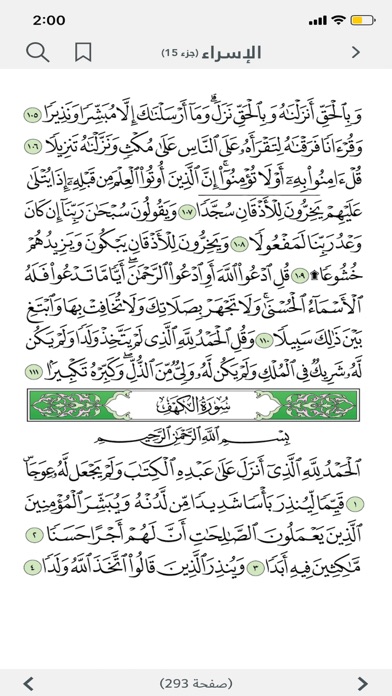 2:00
الإسراء (جزء 15)
وَبِٱلْحَقِّ أَنزَلْنَٰهُ وَبِٱلْحَقِّ نَزَلَ ۗ وَمَآ أَرْسَلْنَٰكَ إِلَّا مُبَشِّرًا وَنَذِيرًا ١٠٥
وَقُرْءَانًا فَرَقْنَٰهُ لِتَقْرَأَهُۥ عَلَى ٱلنَّاسِ عَلَىٰ مُكْثٍ وَنَزَّلْنَٰهُ تَنزِيلًا ١٠٦
قُلْ ءَامِنُوا۟ بِهِۦٓ أَوْ لَا تُؤْمِنُوٓا۟ ۚ إِنَّ ٱلَّذِينَ أُوتُوا۟ ٱلْعِلْمَ مِن قَبْلِهِۦٓ إِذَا يُتْلَىٰ
عَلَيْهِمْ يَخِرُّونَ لِلْأَذْقَانِ سُجَّدًا ١٠٧ وَيَقُولُونَ سُبْحَٰنَ رَبِّنَآ إِن كَانَ
وَعْدُ رَبِّنَا لَمَفْعُولًا ١٠٨ وَيَخِرُّونَ لِلْأَذْقَانِ يَبْكُونَ وَيَزِيدُهُمْ
خُشُوعًا ۩ ١٠٩ قُلِ ٱدْعُوا۟ ٱللَّهَ أَوِ ٱدْعُوا۟ ٱلرَّحْمَٰنَ ۖ أَيًّا مَّا تَدْعُوا۟ فَلَهُ
ٱلْأَسْمَآءُ ٱلْحُسْنَىٰ ۚ وَلَا تَجْهَرْ بِصَلَاتِكَ وَلَا تُخَافِتْ بِهَا وَٱبْتَغِ
بَيْنَ ذَٰلِكَ سَبِيلًا ١١٠ وَقُلِ ٱلْحَمْدُ لِلَّهِ ٱلَّذِى لَمْ يَتَّخِذْ وَلَدًا وَلَمْ يَكُن
لَّهُۥ شَرِيكٌ فِى ٱلْمُلْكِ وَلَمْ يَكُن لَّهُۥ وَلِىٌّ مِّنَ ٱلذُّلِّ ۖ وَكَبِّرْهُ تَكْبِيرًۢا ١١١
سُورَةُ الكَهْفِ
بِسْمِ ٱللَّهِ ٱلرَّحْمَٰنِ ٱلرَّحِيمِ
ٱلْحَمْدُ لِلَّهِ ٱلَّذِىٓ أَنزَلَ عَلَىٰ عَبْدِهِ ٱلْكِتَٰبَ وَلَمْ يَجْعَل لَّهُۥ عِوَجَاۜ
١ قَيِّمًا لِّيُنذِرَ بَأْسًا شَدِيدًا مِّن لَّدُنْهُ وَيُبَشِّرَ ٱلْمُؤْمِنِينَ
ٱلَّذِينَ يَعْمَلُونَ ٱلصَّٰلِحَٰتِ أَنَّ لَهُمْ أَجْرًا حَسَنًا ٢
مَّٰكِثِينَ فِيهِ أَبَدًا ٣ وَيُنذِرَ ٱلَّذِينَ قَالُوا۟ ٱتَّخَذَ ٱللَّهُ وَلَدًا ٤
(صفحة 293)